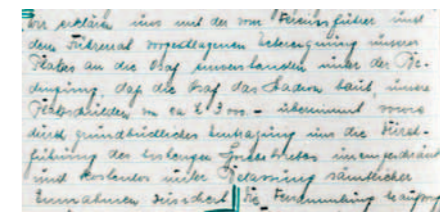 Wir erklären uns mit der vom Vereinsführer und
dem Führerrat vorgeschlagenen Übereignung unseres
Platzes an die Daf einverstanden unter der Be-
dingung, daß die Daf das Stadion baut, unsere
Platzschulden von ca ℛℳ 3 000.- übernimmt, sowie
durch grundbücherliche Eintragung uns die Durch-
führung des bisherigen Spielbetriebes uneingeschränkt
und kostenlos unter Belassung sämtlicher
Einnahmen zusichert. Die Versammlung beauftragt